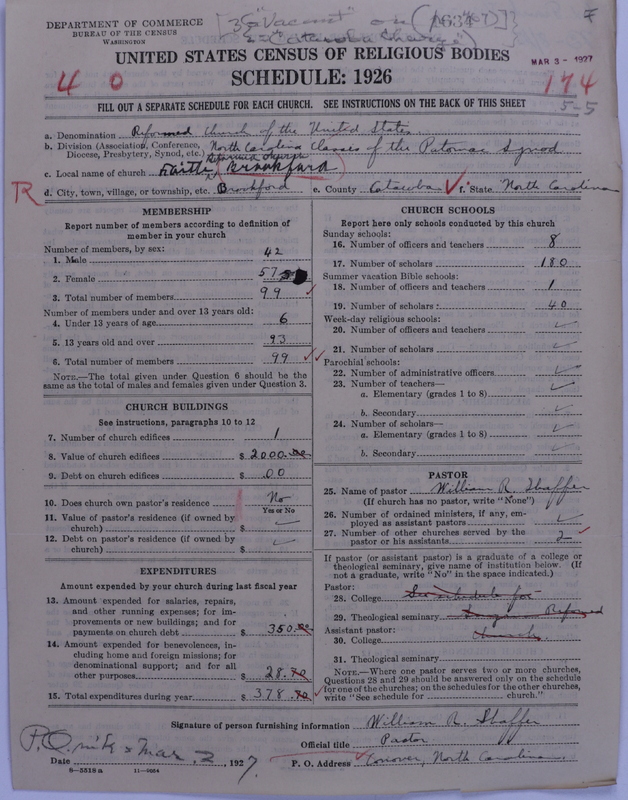 DEPARTMENT OF COMMERCE
BUREAU OF THE CENSUS
WASHINGTON
[3="Vacant" on
2="Catawba Charge"]
UNITED STATES CENSUS OF RELIGIOUS BODIES
MAR 3 - 1927
SCHEDULE: 1926
4 0
174
5-5
FILL OUT A SEPARATE SCHEDULE FOR EACH CHURCH. SEE INSTRUCTIONS ON THE BACK OF THIS SHEET
a. Denomination Reformed Church of the United States
b. Division (Association, Conference, Diocese, Presbytery, Synod, etc.) North Carolina Classes of the Potomac Synod
c. Local name of church Faith Reformed Church (Brookford)
R
d. City, town, village, or township, etc. Brookford e. County Catawba f. State North Carolina
MEMBERSHIP
Report number of members according to definition of
member in your church
Number of members, by sex:
1. Male 42
2. Female 57
3. Total number of members 99
Number of members under and over 13 years old:
4. Under 13 years of age 6
5. 13 years old and over 93
6. Total number of members 99
NOTE.—The total given under Question 6 should be
same as the total of males and females given under Question 3.
CHURCH BUILDINGS
See instructions, paragraphs 10 to 12
7. Number of church edifices 1
8. Value of church edifices $ 2000.00
9. Debt on church edifices $ 00
10. Does church own pastor's residence No
Yes or No
11. Value of pastor's residence (if owned by
church) $
12. Debt on pastor's residence (if owned by
church) $
EXPENDITURES
Amount expended by your church during last fiscal year
13. Amount expended for salaries, repairs,
and other running expenses; for im-
provements or new buildings; and for
payments on church debt $ 350.00
14. Amount expended for benevolences, in-
cluding home and foreign missions; for
denominational support; and for all
other purposes $ 28.
15. Total expenditures during year $ 378.
CHURCH SCHOOLS
Report here only schools conducted by this church
Sunday schools:
16. Number of officers and teachers 8
17. Number of scholars 180
Summer vacation Bible schools:
18. Number of officers and teachers 1
19. Number of scholars 40
Week-day religious schools:
20. Number of officers and teachers
21. Number of scholars
Parochial schools:
22. Number of administrative officers
23. Number of teachers—
a. Elementary (grades 1 to 8)
b. Secondary
24. Number of scholars—
a. Elementary (grades 1 to 8)
b. Secondary
PASTOR
25. Name of pastor William R. Shaffer
(If church has no pastor, write "None")
26. Number of ordained ministers, if any, em-
ployed as assistant pastors
27. Number of other churches served by the
pastor or his assistants 2
If pastor (or assistant pastor) is a graduate of a college or
theological seminary, give name of institution below. (If
not a graduate, write "No" in the space indicated.)
Pastor:
28. College See schedule for
29. Theological seminary Reformed
Assistant pastor:
30. College Church.
31. Theological seminary
NOTE.—Where one pastor serves two or more churches,
Questions 28 and 29 should be answered only on the schedule
for one of the churches; on the schedules for the other churches,
write "See schedule for church."
Signature of person furnishing information William R. Shaffer
Official title Pastor
P.O. Mar. 2
Date , 1927.
P. O. Address Conover, North Carolina.
8—5518 a 11—9064